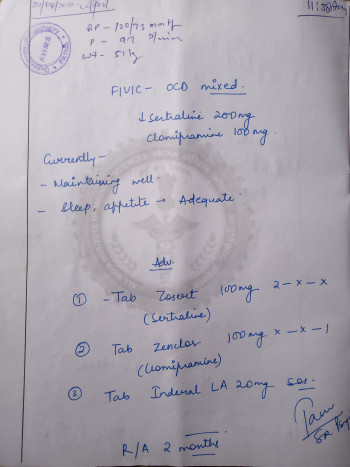 11:38am
BP - 120/73 mmHg
P - 97 b/min
Wt - 51 kg
AIIMS
PATNA
F/U/C - OCD mixed.
↓ Sertraline 200mg
Clomipramine 100mg.
Currently -
- Maintaining well.
- Sleep, appetite → Adequate.
Adv.
① - Tab Zosert 100mg 2-x-x
(Sertraline)
② Tab Zenclor 100mg x-x-1
(Clomipramine)
③ Tab Inderal LA 20mg sos.
SR Psy
R/A 2 months